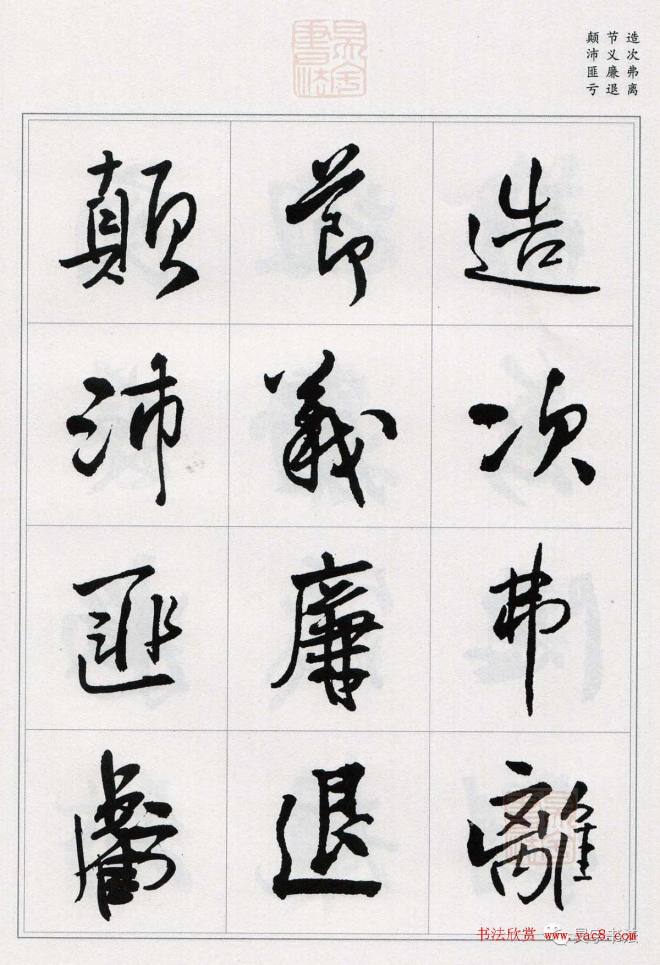 造次弗离
节义廉退
颠沛匪亏
造次弗離
節義廉退
顛沛匪虧
书法欣赏 www.yac8.com